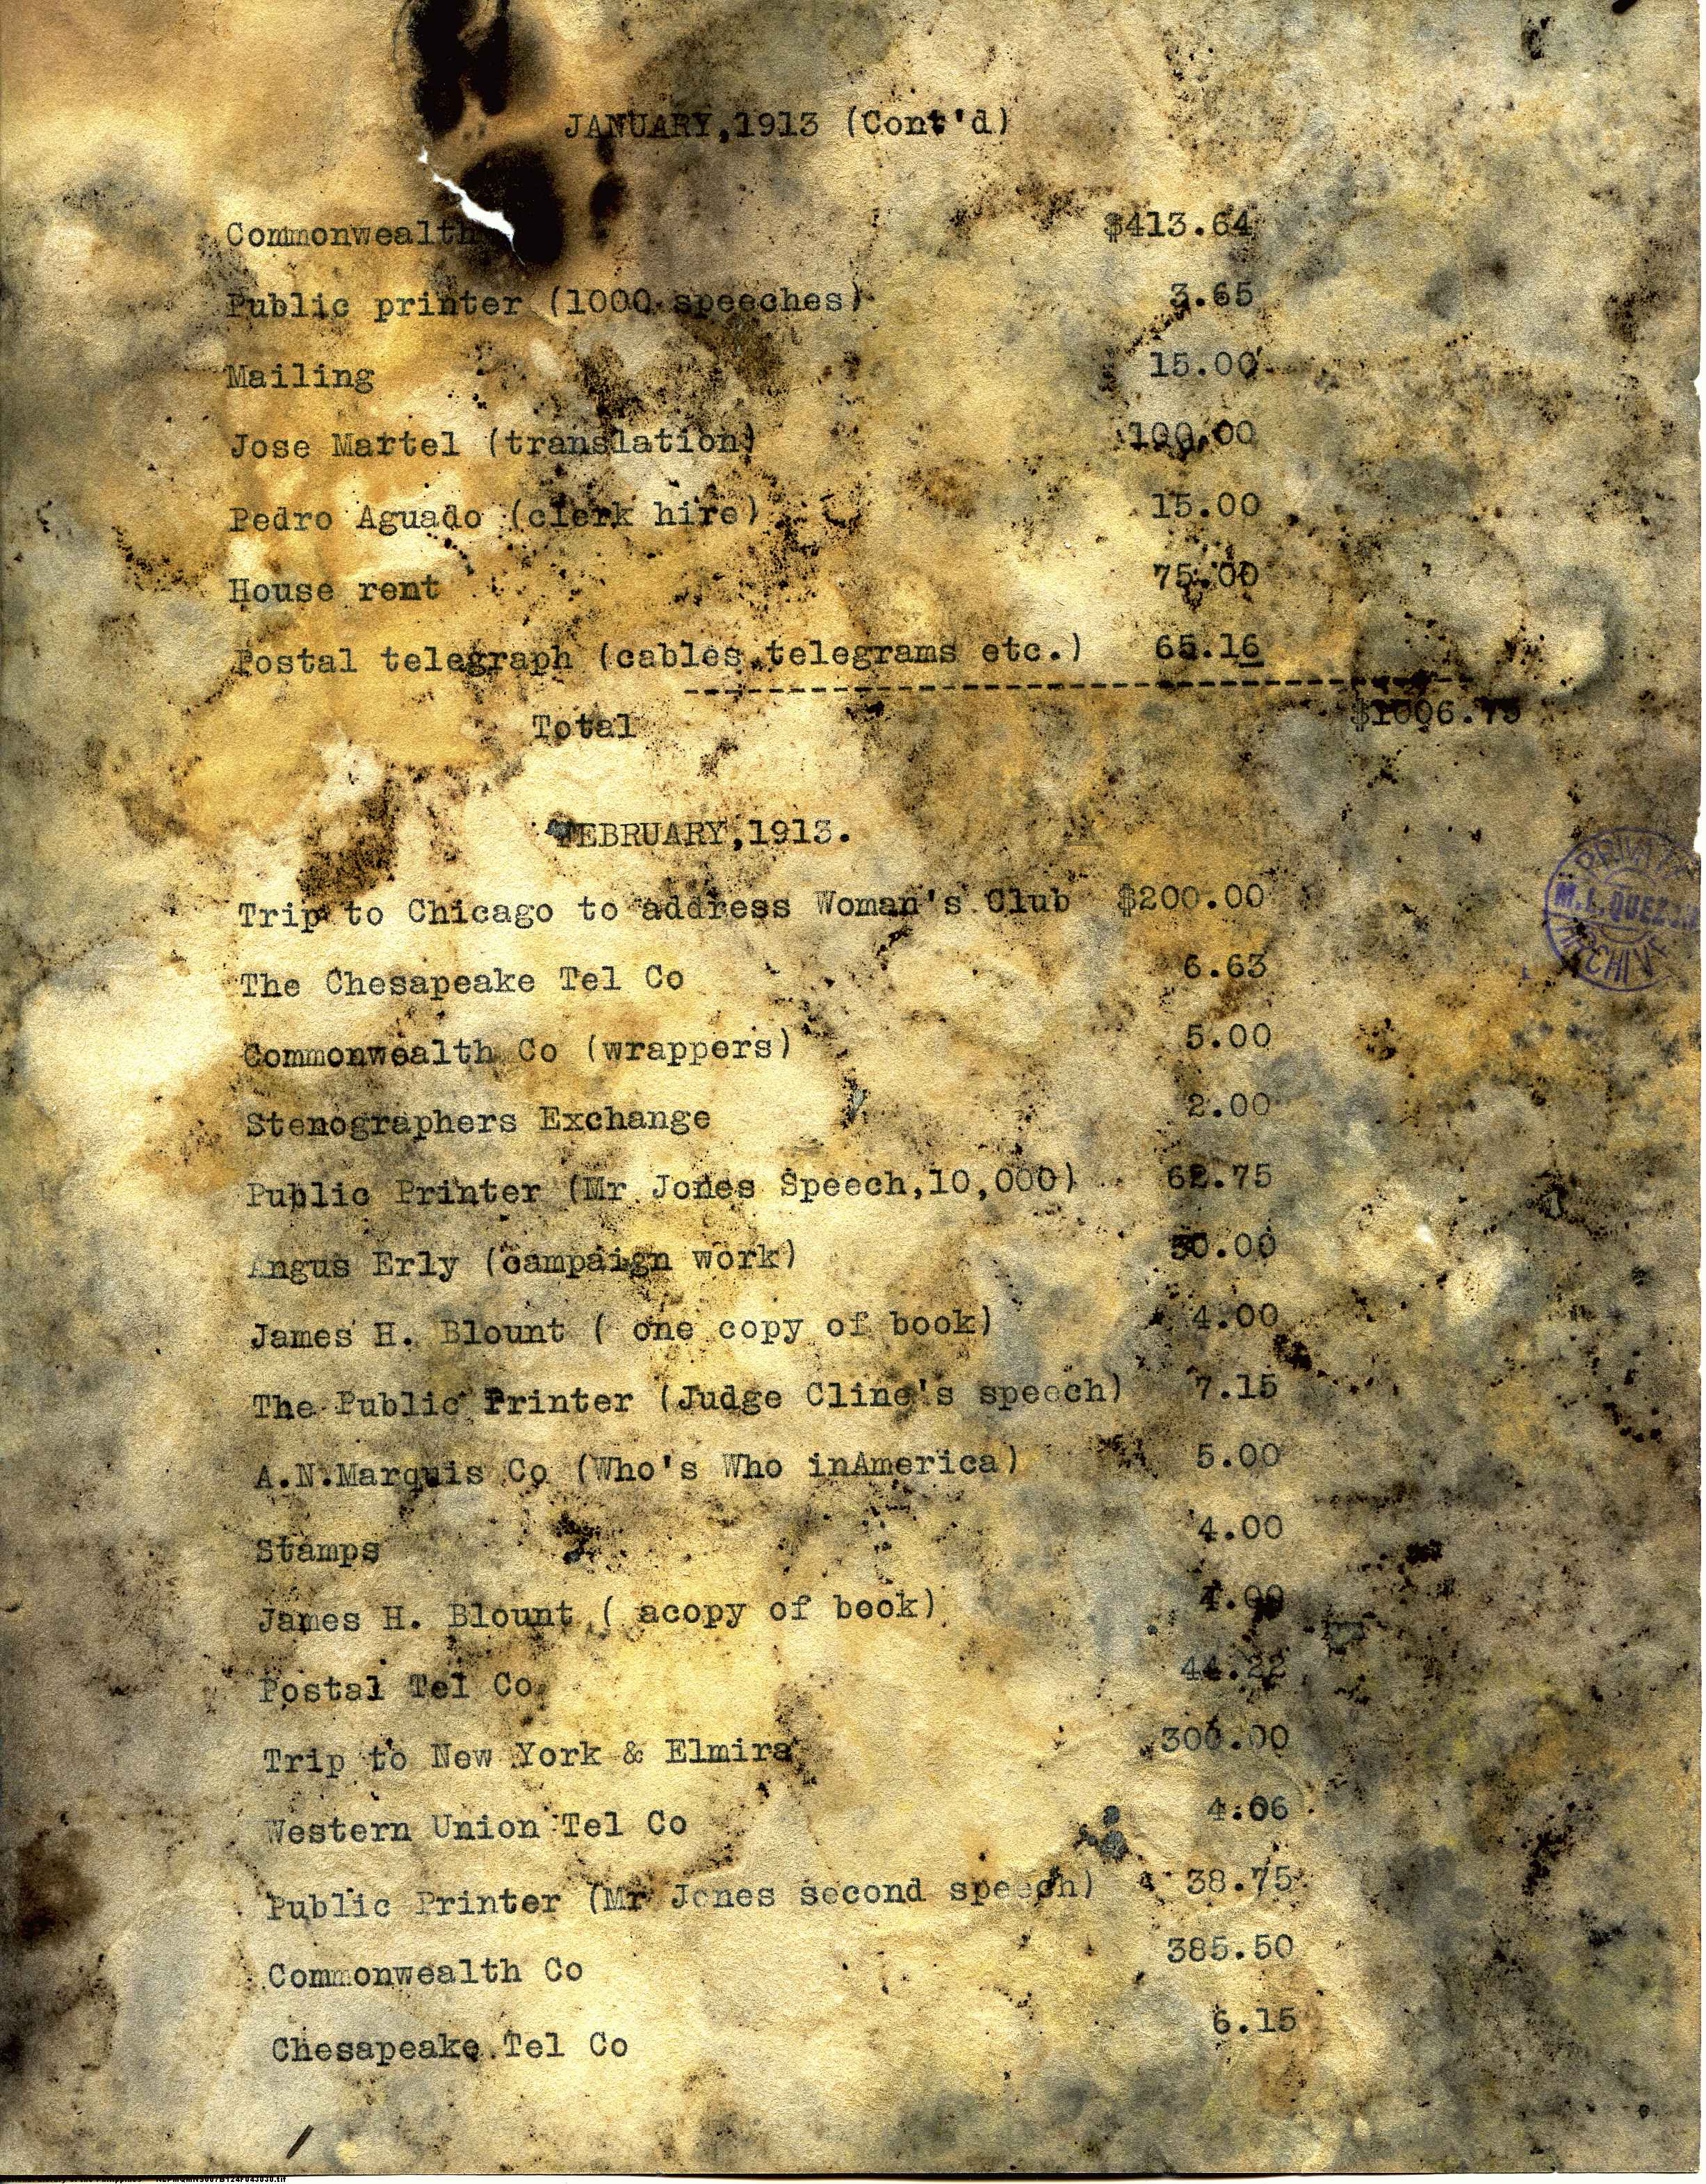 JANUARY,1913 (Cont'd)
Commonwealth $413.64
Public printer (1000 speeches) 3.65
Mailing 15.00
Jose Martel (translation) 100.00
Pedro Aguado (clerk hire) 15.00
House rent 75.00
Postal telegraph (cables,telegrams etc.) 65.16
Total $1006.75
FEBRUARY,1913.
Trip to Chicago to address Woman's Club $200.00
The Chesapeake Tel Co 6.63
Commonwealth Co (wrappers) 5.00
Stenographers Exchange 2.00
Public Printer (Mr Jones Speech,10,000) 62.75
Angus Erly (campaign work) 30.00
James H. Blount ( one copy of book) 4.00
The Public Printer (Judge Cline's speech) 7.15
A.N.Marquis Co (Who's Who inAmerica) 5.00
Stamps 4.00
James H. Blount ( acopy of book) 4.00
Postal Tel Co 44.22
Trip to New York & Elmira 300.00
Western Union Tel Co 4.06
Public Printer (Mr Jones second speech) 38.75
Commonwealth Co 385.50
Chesapeake Tel Co 6.15
PRIVATE
M.L.QUEZON
ARCHIVE